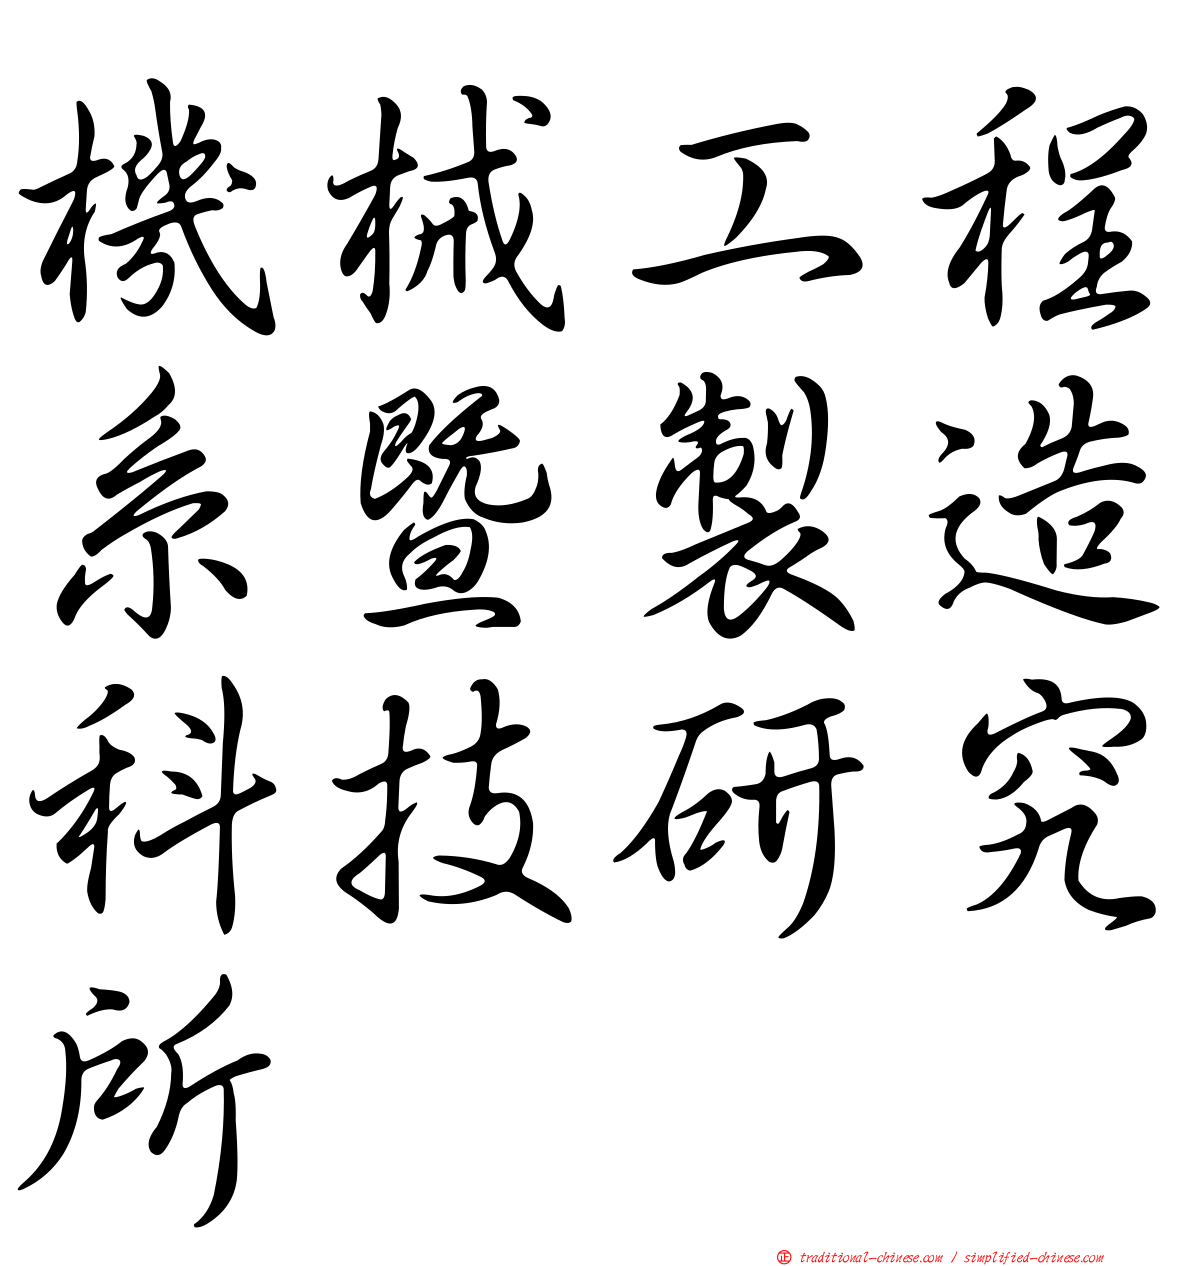 機械工程
系暨製造
科技研究
所
㊣ traditional-chinese.com / simplified-chinese.com